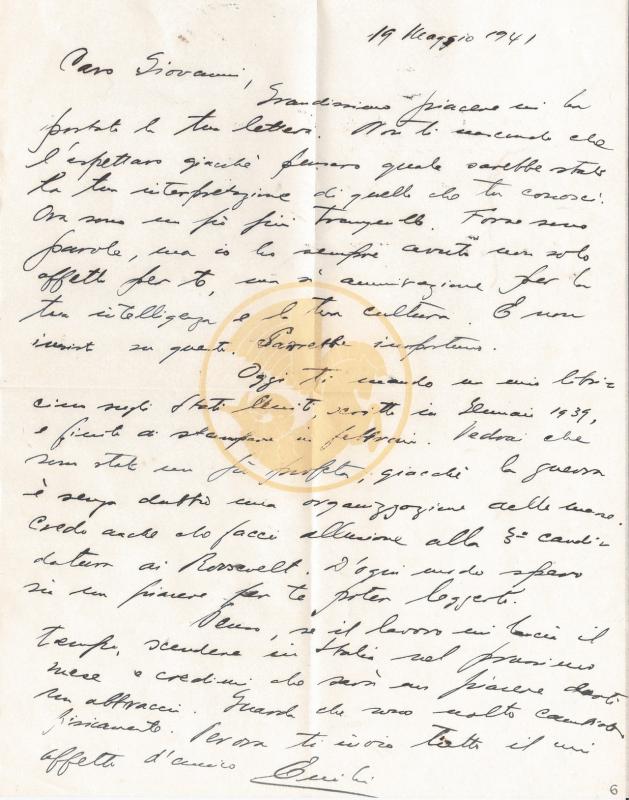 19 Maggio 1941
Caro Giovanni,
Grandissimo piacere mi ha
portato la tua lettera. Non ti nascondo che
l'aspettavo giacchè pensavo quale sarebbe stata
la tua interpretazione di quello che tu conosci.
Ora sono un pò più tranquillo. Forse sono
parole, ma io ho sempre avuto non solo
affetto per te, ma sì ammirazione per la
tua intelligenza e la tua cultura. E non
insisto su questo. Sarebbe inopportuno.
Oggi ti mando un mio libri-
cino sugli Stati Uniti, scritto in Gennaio 1939,
e finito di stampare in febbraio. Vedrai che
sono stato un pò profeta, giacchè la guerra
è senza dubbio una organizzazione delle masse.
Credo anche che facci allusione alla 3ª candi-
datura di Roosevelt. D'ogni modo spero
sia un piacere per te poter leggerlo.
Penso, se il lavoro mi lascia il
tempo, scendere in Italia nel prossimo
mese e credimi che sarà un piacere darti
un abbraccio. Guarda che sono molto cambiato
fisicamente. Per ora ti invio tutto il mio
affetto d'amico
6